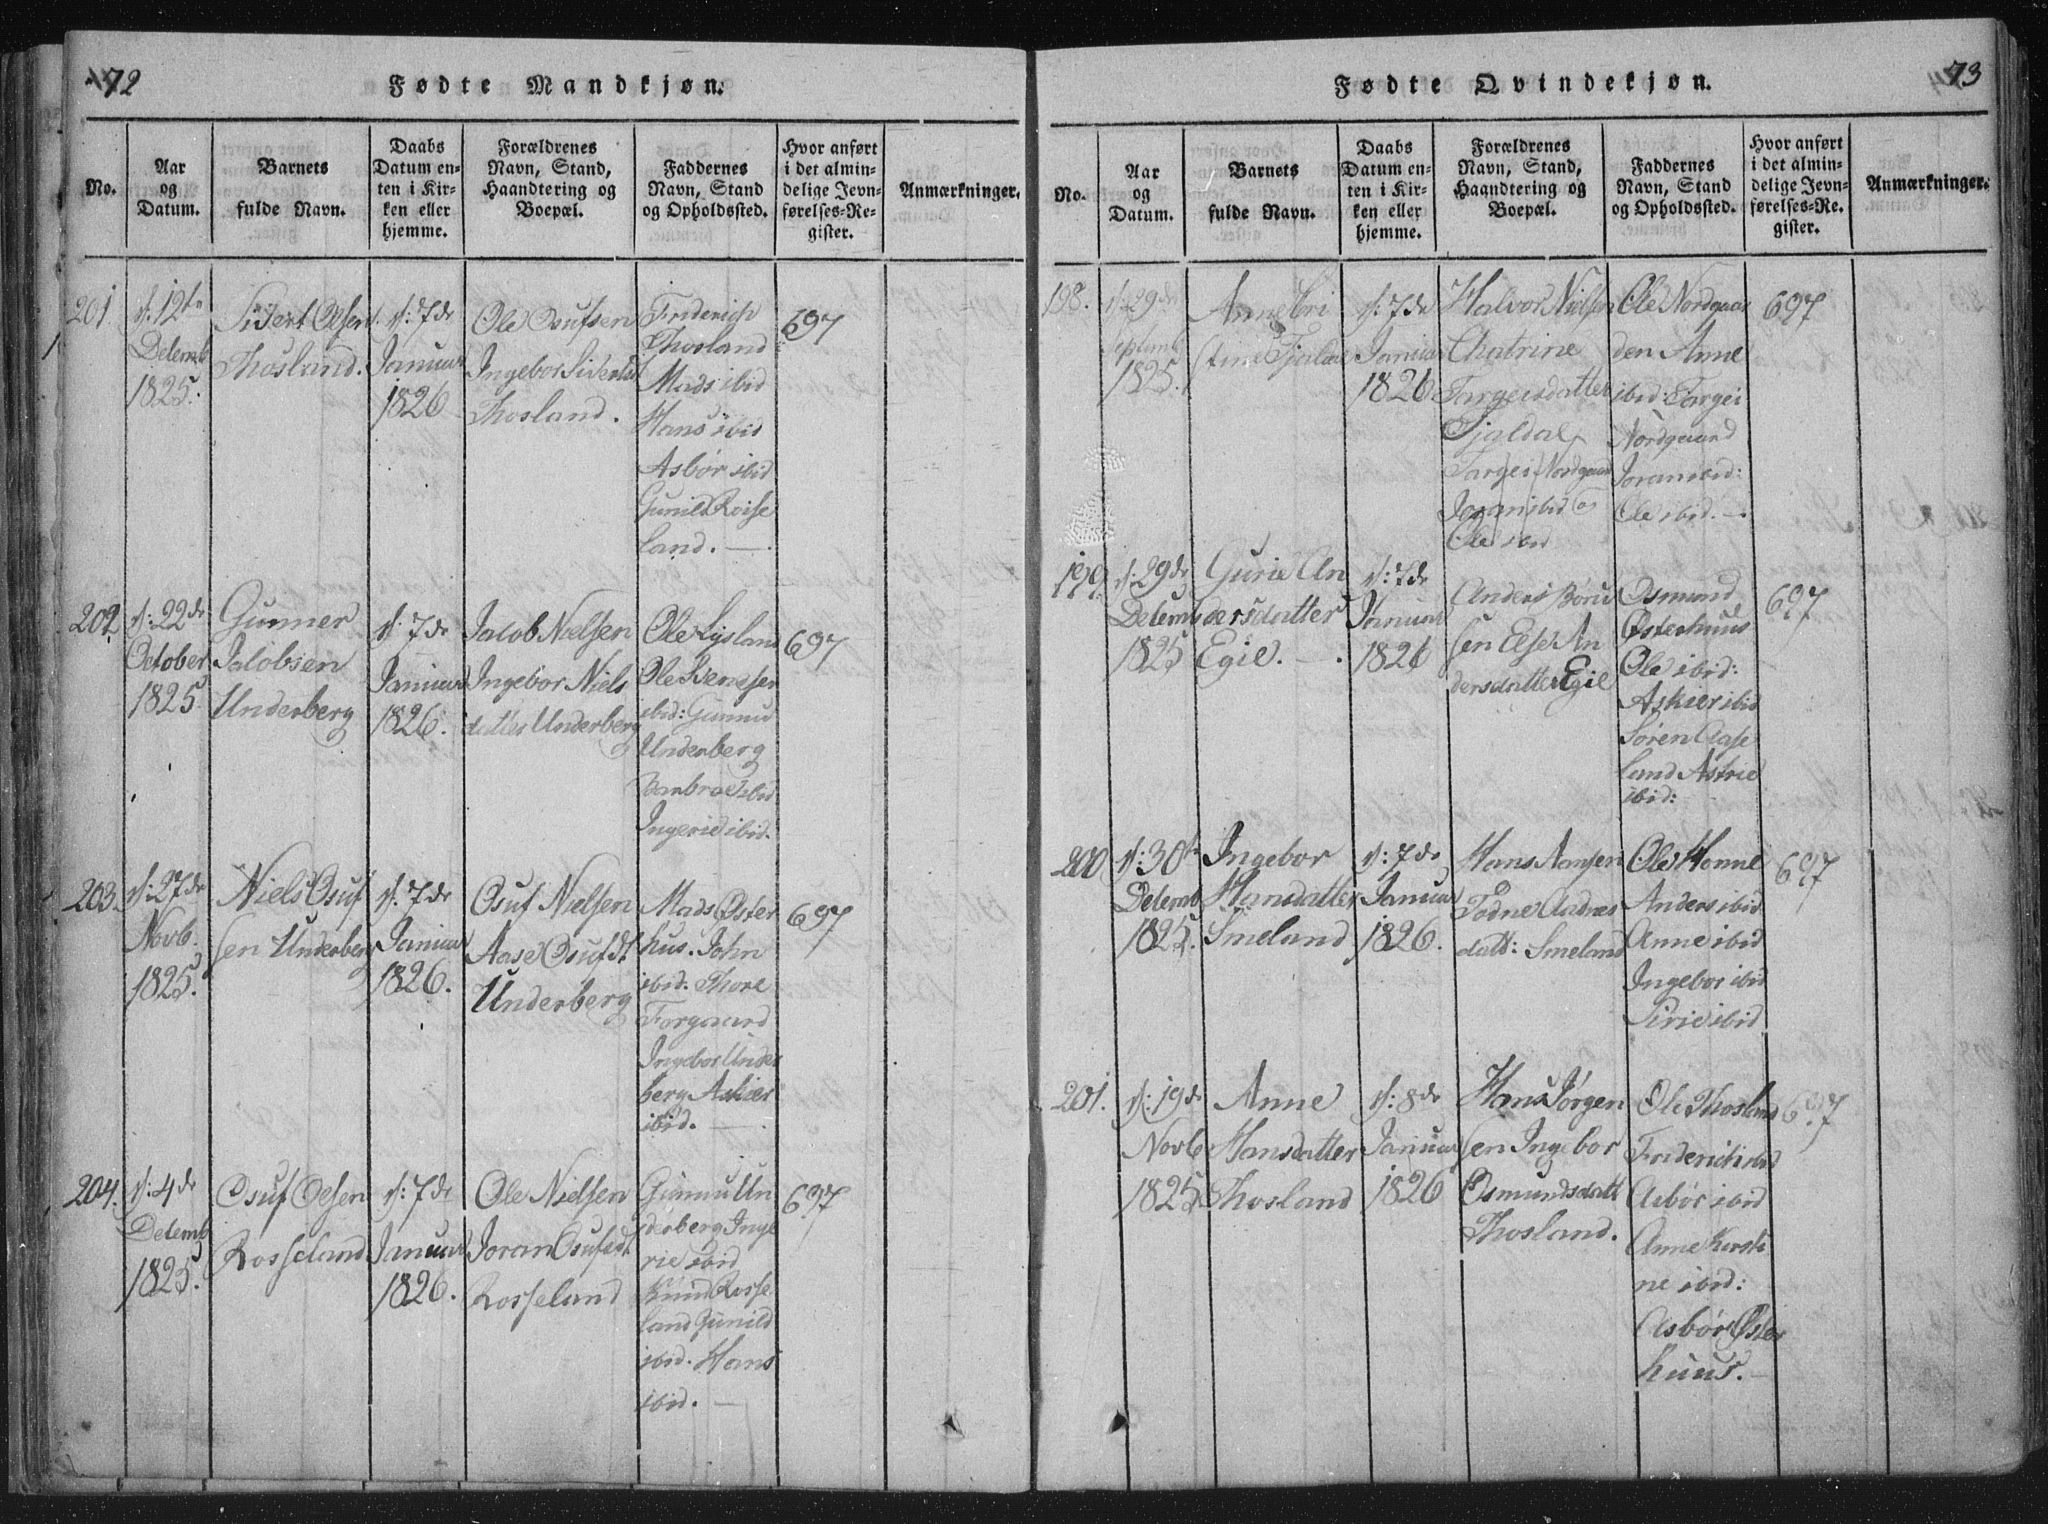 72
Fødte Mandkjøn.
No.
Aar
og
Datum.
Barnets
fulde Navn.
Daabs
Datum en-
ten i Kir-
ken eller
hjemme.
Forældrenes
Navn, Stand,
Haandtering og
Boepæl.
Faddernes
Navn, Stand
og Opholdssted.
Hvor anført
i det almin-
delige Jevn-
førelses-Re-
gister.
Anmærkninger.
201
d: 12te
Decemb
1825.
Sivert Olsen
Thosland.
d: 7de
Januar
1826
Ole Osufsen
Ingebor Sivertsd
Thosland.
Friderich
Thosland
Mads ibid
Hans ibid
Asbør ibid
Gunild Roise
land. —
697
202
d: 22de
October
1825.
Gunner
Jacobsen
Underberg
d: 7de
Januar
1826.
Jacob Nielsen
Ingebor Niels
datter Underberg
Ole Lysland
Ole
ibid: Gunnu
Underberg
ibid
Ingerie ibid.
697
203.
d: 27de
Novb.
1825.
Niels Osuf
sen Underberg
d: 7de
Januar
1826.
Osuf Nielsen
Aase Osufdt
Underberg
Mads Øster
hus. John
ibid. Thore
Forgaard
Ingebor Under
berg Askier
ibid. —
697
204.
d: 4de
Decemb
1825.
Osuf Olsen
Rosseland
d: 7de
Januar
1826.
Ole Nielsen
Joran Osufsdt
Rosseland
Gunnu Un
derberg Inge
rie ibid
Knud Rosse
land Gunild
ibid. Hans
ibid. —
697
73
Fødte Qvindekjøn.
No.
Aar
og
Datum.
Barnets
fulde Navn.
Daabs
Datum en-
ten i Kir-
ken eller
hjemme.
Forældrenes
Navn, Stand,
Haandtering og
Boepæl.
Faddernes
Navn, Stand
og Opholdssted.
Hvor anført
i det almin-
delige Jevn-
førelses-Re-
gister.
Anmærkninger.
198.
d: 29de
Septemb
1825.
Anne Cri
stine Fjaldal
d: 7de
Januar
1826
Halvor Nielsen
Chatrine
Targeisdatter
Fjaldal
Targei Nordgaard
Joran ibid
Ole ibid
Ole Nordgaar
den Anne
ibid: Targei
Nordgaard
Joran ibid:
Ole ibid. —
697
199
d: 29de
Decemb
1825
Gurie An
dersdatter
Egie. —
d: 7de
Januar
1826
Anders Børu
sen Else An
dersdatter Egie
Osmund
Østerhuus
Ole ibid:
Askier ibid
Søren Aase
land Astrie
ibid:
697
200
d: 30te
Decemb
1825.
Ingebor
Hansdatter
Smeland
d: 7de
Januar
1826.
Hans Aansen
Todne Aadnes
datt: Smeland
Ole Honne
Anders ibid
Anne ibid
Ingebor ibid
Sirie ibid
697
201.
d: 19de
Novb
1825
Anne
Hansdatter
Thosland
d: 8de
Januar
1826
Hans Jørgen
sen Ingebor
Osmundsdatt
Thosland.
Ole Thosland
Friderich ibid
Asbør ibid
Anne Kirsti
ne ibid:
Asbør Øster
huus. —
697